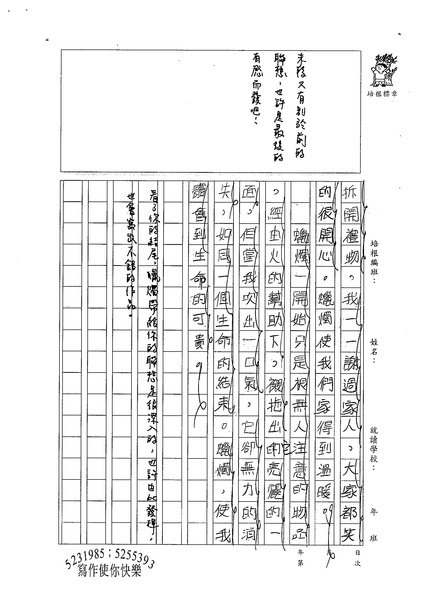 培根標章
培根編班：
姓名：
就讀學校：
年
班
年
月
日
第
次
拆開禮物，我一一謝過家人，大家都笑
的很開心。蠟燭使我們家得到溫暖。
蠟燭一開始只是根無人注意的物品
，經由火的幫助下，襯托出它的亮麗的一
面，但當我吹出一口氣，它卻無力的消
失，如同一個生命的結束。蠟燭，使我
體會到生命的可貴。
看了你的結尾，蠟燭帶給你的聯想是很深入的，也許由此發揮，
也會寫出不錯的作品。
末段又有別於前的
聯想，也許是最後的
有感而發吧！
5231985；5255393
寫作使你快樂